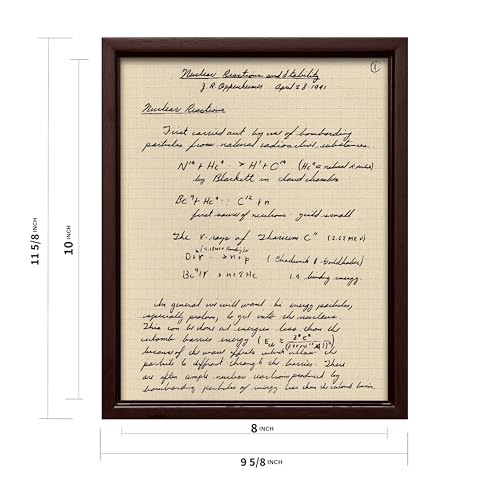 ①
Nuclear Reactions and Stability
J. R. Oppenheimer April 28 1941
Nuclear Reactions
First carried out by use of bombarding
particles from natural radioactive substances.
N¹⁴ + He⁴ → H¹ + O¹⁷ (He⁴ = natural α rays)
by Blackett in cloud chamber
Be⁹ + He⁴ : C¹² + n
first source of neutrons - yield small
The γ-rays of Thorium C" (2.62 MEV)
D + γ → n + p (Chadwick & Goldhaber)
Be⁹ + γ → n + 2He binding energy.
In general we will want the energy particles,
especially protons, to get into the nucleus.
This can be done at energies less than the
coulomb barrier energy
because of the wave effects which allow the
particle to diffract through the barrier. There
are often ample nuclear reactions produced by
bombarding particles of energy less than the coulomb barrier.
11 5/8 INCH
10 INCH
8 INCH
9 5/8 INCH